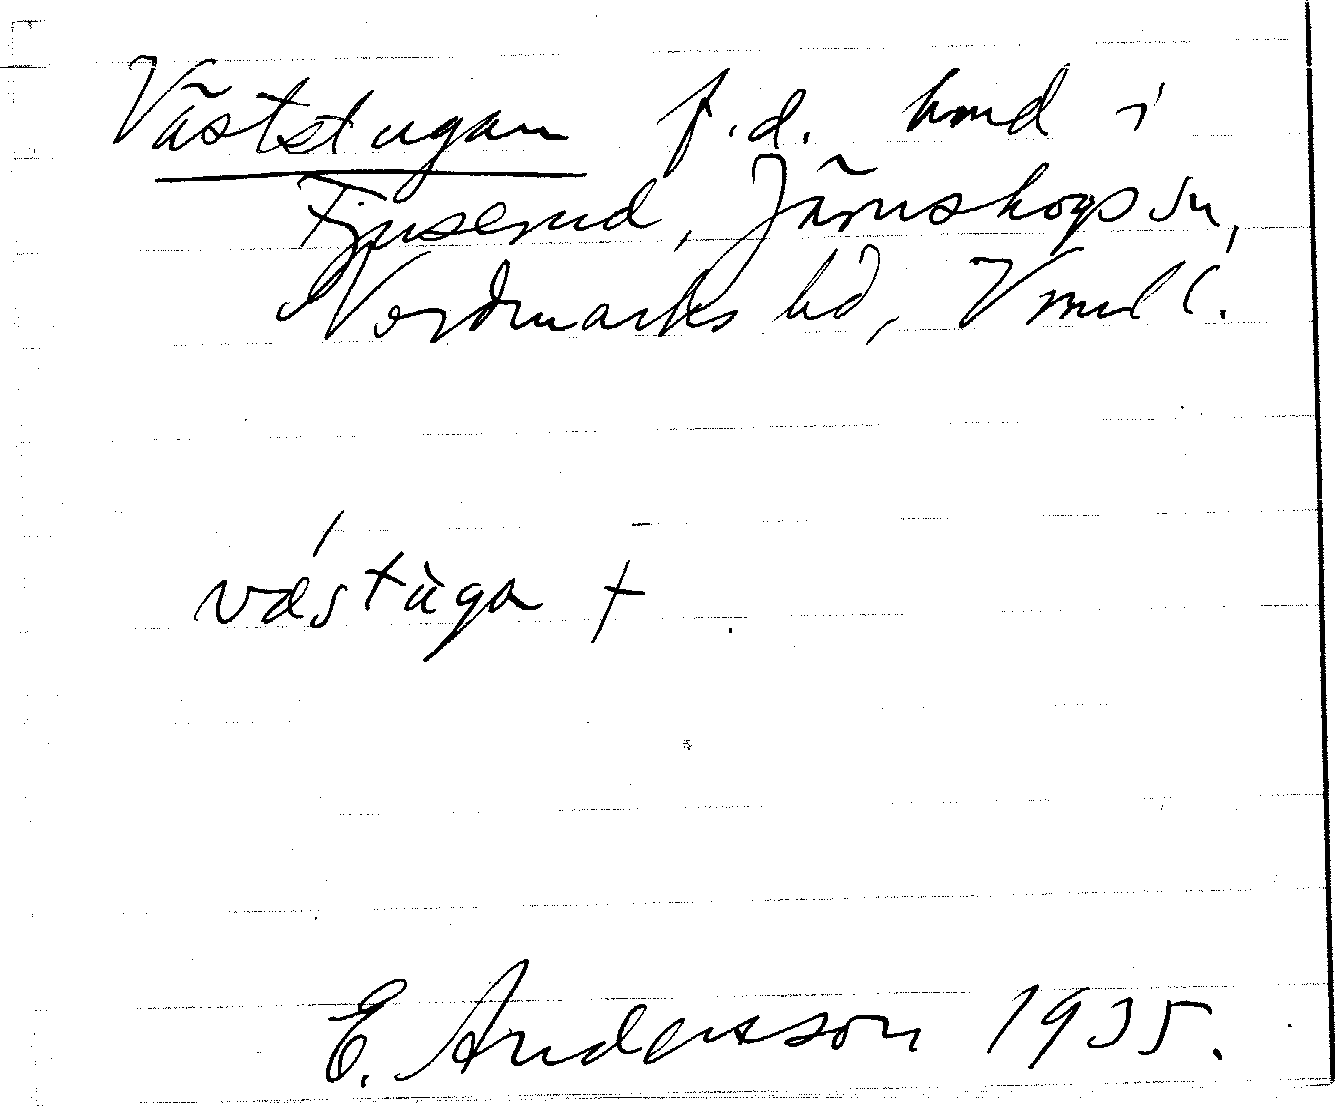 Väststugan f.d. hmd i
Fjuserud, Järnskogs sn,
Nordmarks hd, Vrml.
västùga +
E. Andersson 1935.